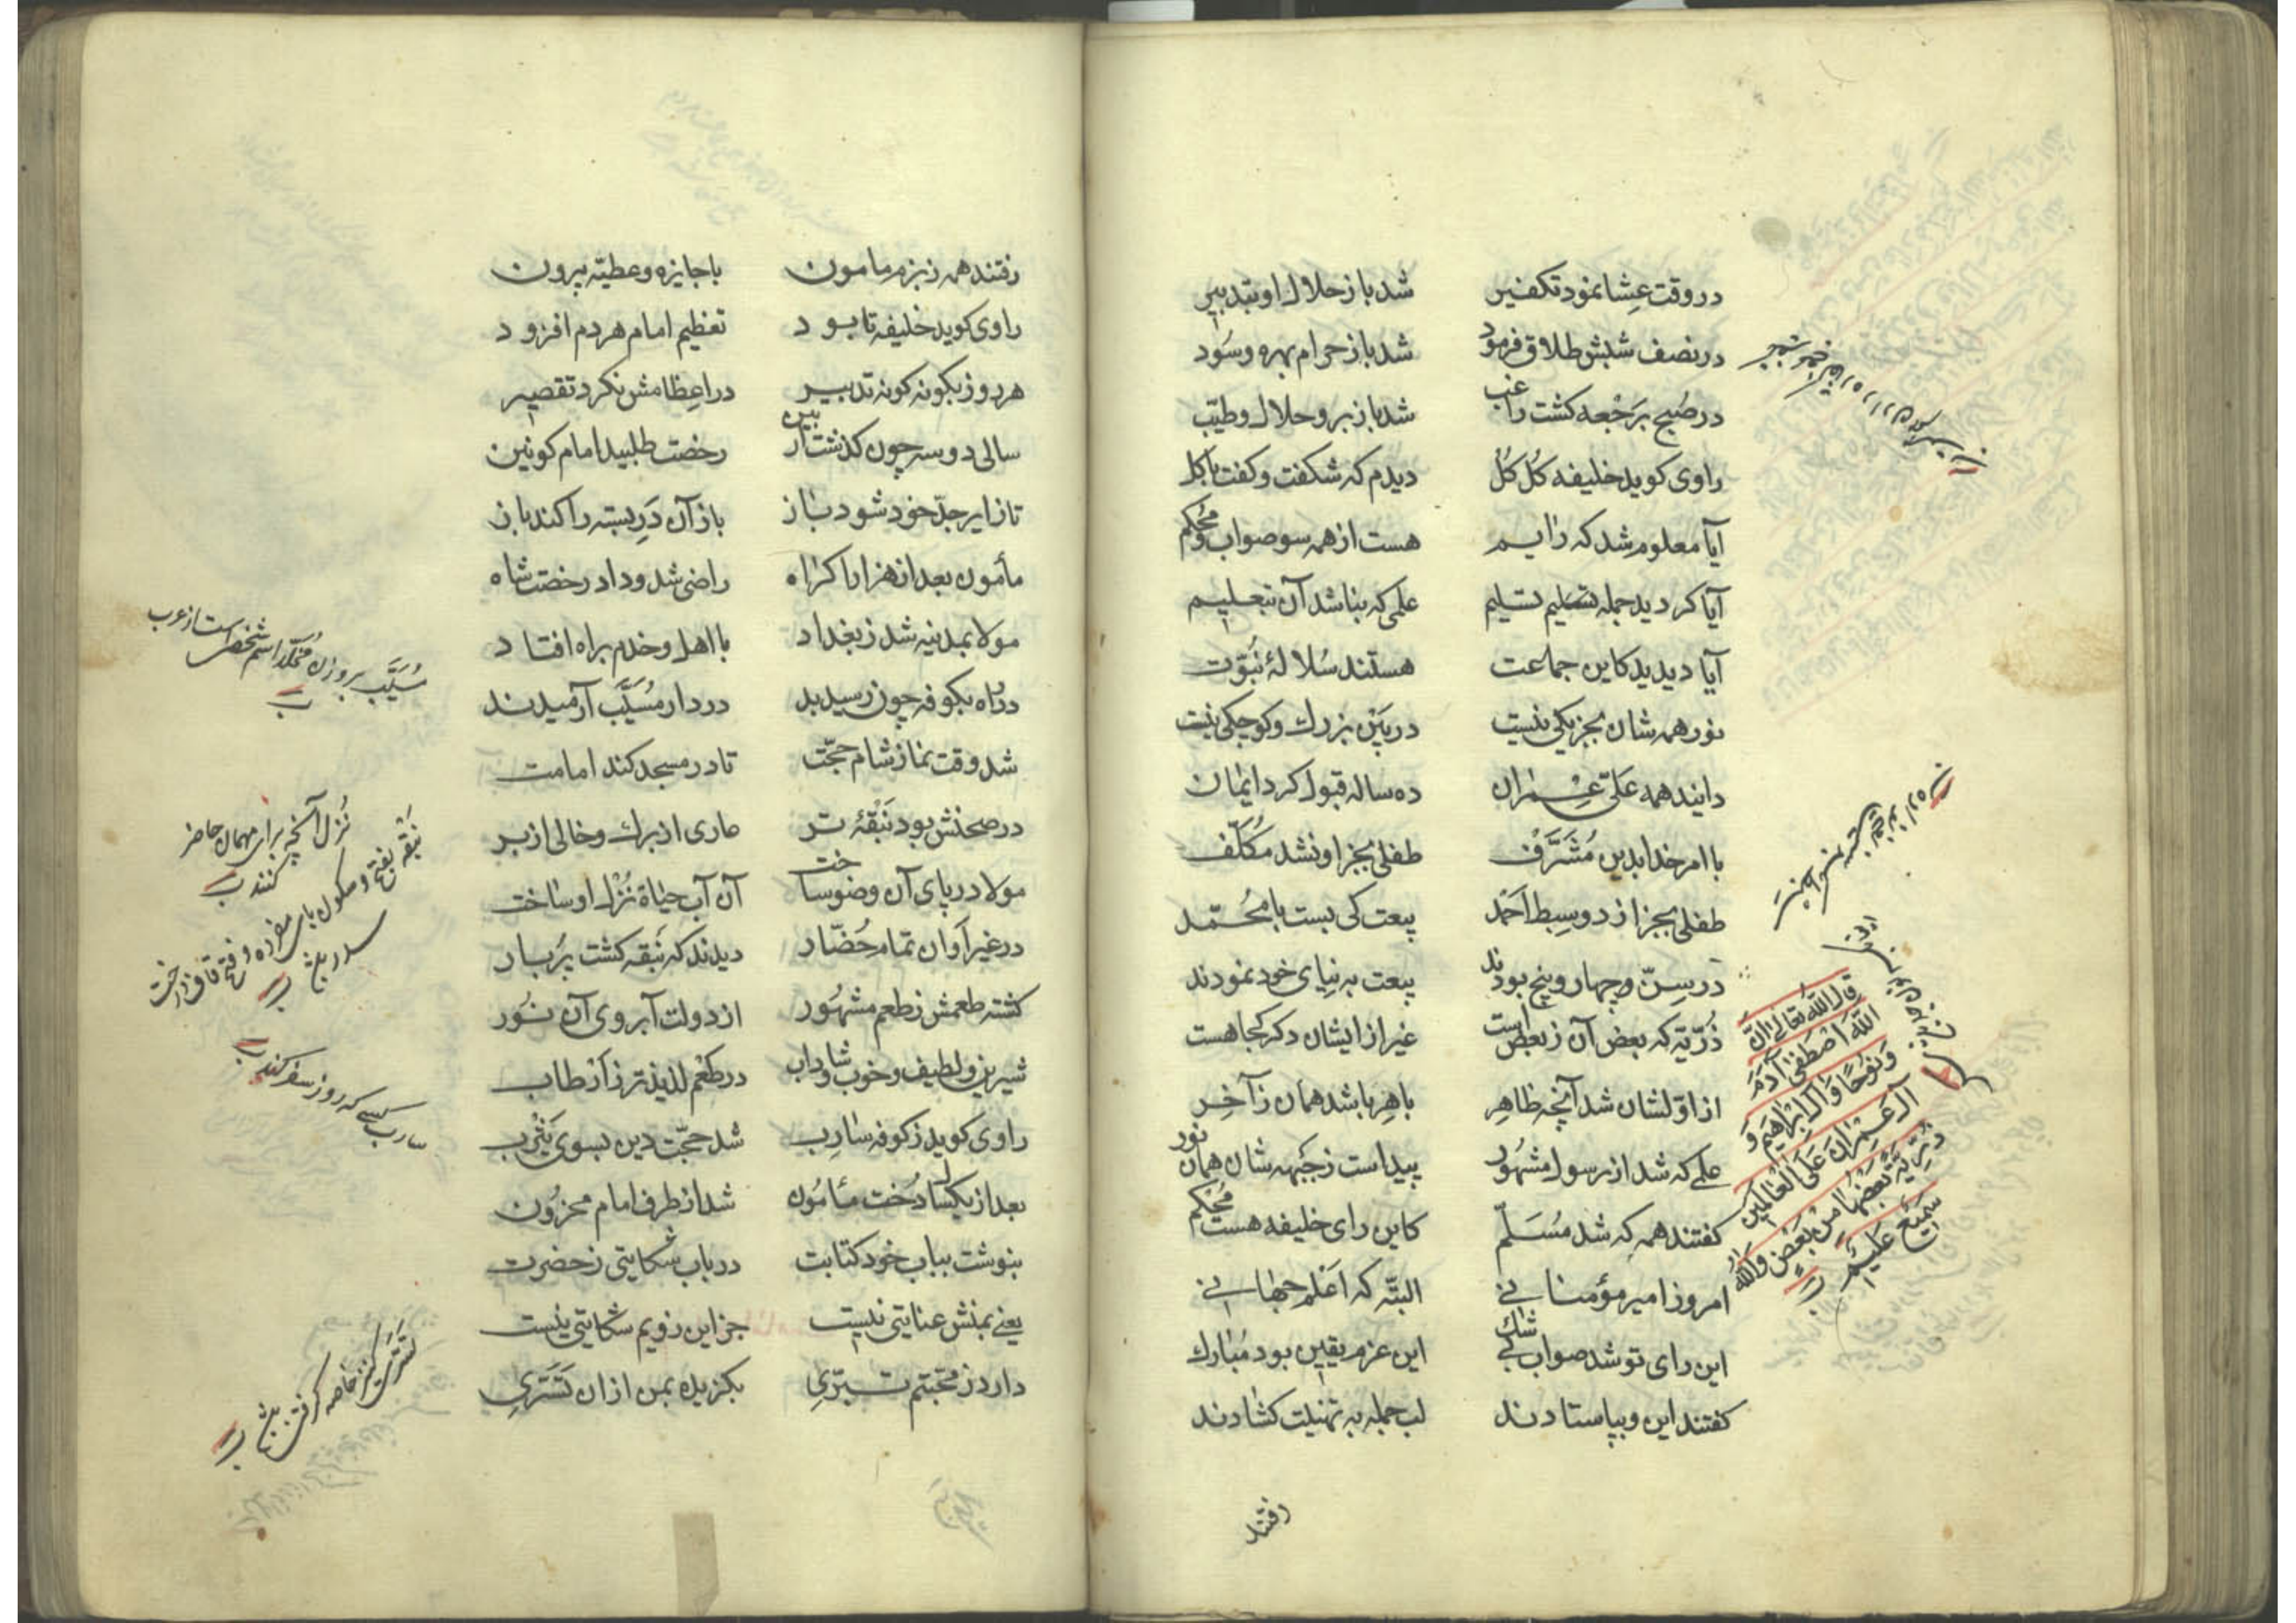 در وقت عشا نمود تکفیر شد باز حلال او بتدبیر
در نصف شبش طلاق فرمود شد باز حرام بهره و سود
در صبح برَجْعه کشت راغب شد باز برو حلال و طیّب
راوی کوید خلیفه کُل کُل دیدم که شکفت و کفت با کل
آیا معلوم شد که رایم هست از همه سو صواب و مُحکم
آیا کردید جمله تسلیم علمی که بناشد آن بتعلیم
آیا دیدید کاین جماعت هستند سُلالهٔ نَبوّت
نور همه شان بجز یکی نیست در بَیْن بزرک و کوچکی نیست
دانند همه علیّ عِمْران ده ساله قبول کرد ایمان
با امر خدا بدین مُشَرَّف طفلی بجز او نشد مُکلّف
طفلی بجز از دو سِبط احمَد بیعت کی بست با مُحَمّد
در سِنّ و چهار و پنج بودند بیعت به نیای خود نمودند
ذُرّیّه که بعض آن ز بعض است غیر از ایشان دکر کجا هست
از اوّلشان شد آنچه ظاهِر باهِر باشد همان ز آخِر
علمی که شد از رسول مشهُور پیداست ز جَبهه شان همان نور
کفتند همه که شد مُسَلّم کاین رای خلیفه هست مُحکم
امروز امیر مؤمنانی البتّه که اَعْلم جهانی
این رای تو شد صواب بی شک این عزم یقین بود مُبارک
کفتند این و بپاستادند لب جمله به تهنیت کشادند
رفتند
قال الله تعالی اِنّ
اللهَ اصْطَفٰی آدَمَ
وَ نُوحًا وَ آلَ اِبْراهیمَ وَ
آلَ عِمْرانَ عَلَی الْعٰالَمینَ
ذُرِّیَّةً بَعْضُها مِنْ بَعْضٍ وَاللهُ
سَمیعٌ عَلیمٌ
رفتند همه ز بزم مامون با جایزه و عطیّه بیرون
راوی کوید خلیفه تا بود تعظیم امام هر دم افزود
هر روز بکونه کونه تدبیر در اِعظامش نکرد تقصیر
سالی دو سه چون کذشت ازین بین رخصت طلبید امام کونین
تا زایر جدّ خود شود باز باز آن دَرِ بسته را کند باز
مأمون بعد از هزار اکراه راضی شد و داد رخصت شاه
مولا بمدینه شد ز بغداد با اهل و خدم براه افتاد
در راه بکوفه چون رسیدند در دار مُسَیَّب آرمیدند
شد وقت نماز شام حجّت تا در مسجد کند امامت
در صحنش بود نَبْقهٔ تر عاری از برک و خالی از بر
مولا در پای آن وضو ساخت آن آب حیاة نُزْل او ساخت
در غیر اَوان تمام حُضّار دیدند که نَبقه کشت پُر بار
کشته طعمش ز طعم مشهُور از دولت آبروی آن نُور
شیرین و لطیف و خوب و شاداب در طَعْم لذیذتر ز اَرْطاب
راوی کوید ز کوفه سٰارِب شد حجّت دین بسوی یَثْرب
بعد از یکسال دُخت مأمُون شد از طرف امام محزُون
بنوشت بباب خود کتابت در باب شکایتی ز حضرت
یعنی بمنش عنایتی نیست جز این ز ویم شکایتی نیست
دارد ز محبّتم تبرّی بکزیده بمن از ان تَسَرّی
مُسَیَّب بر وزن مُحَمَّد اسم شخصی است از عرب
نُزل آنچه برای مهمان حاضر
کنند
نَبْقه بفتح و سکون بای مفرده و فتح قاف درخت
سدر باشد
سارب کسی که روز سفر کند
تسَرّی کنیز خاصه کرفتن باشد